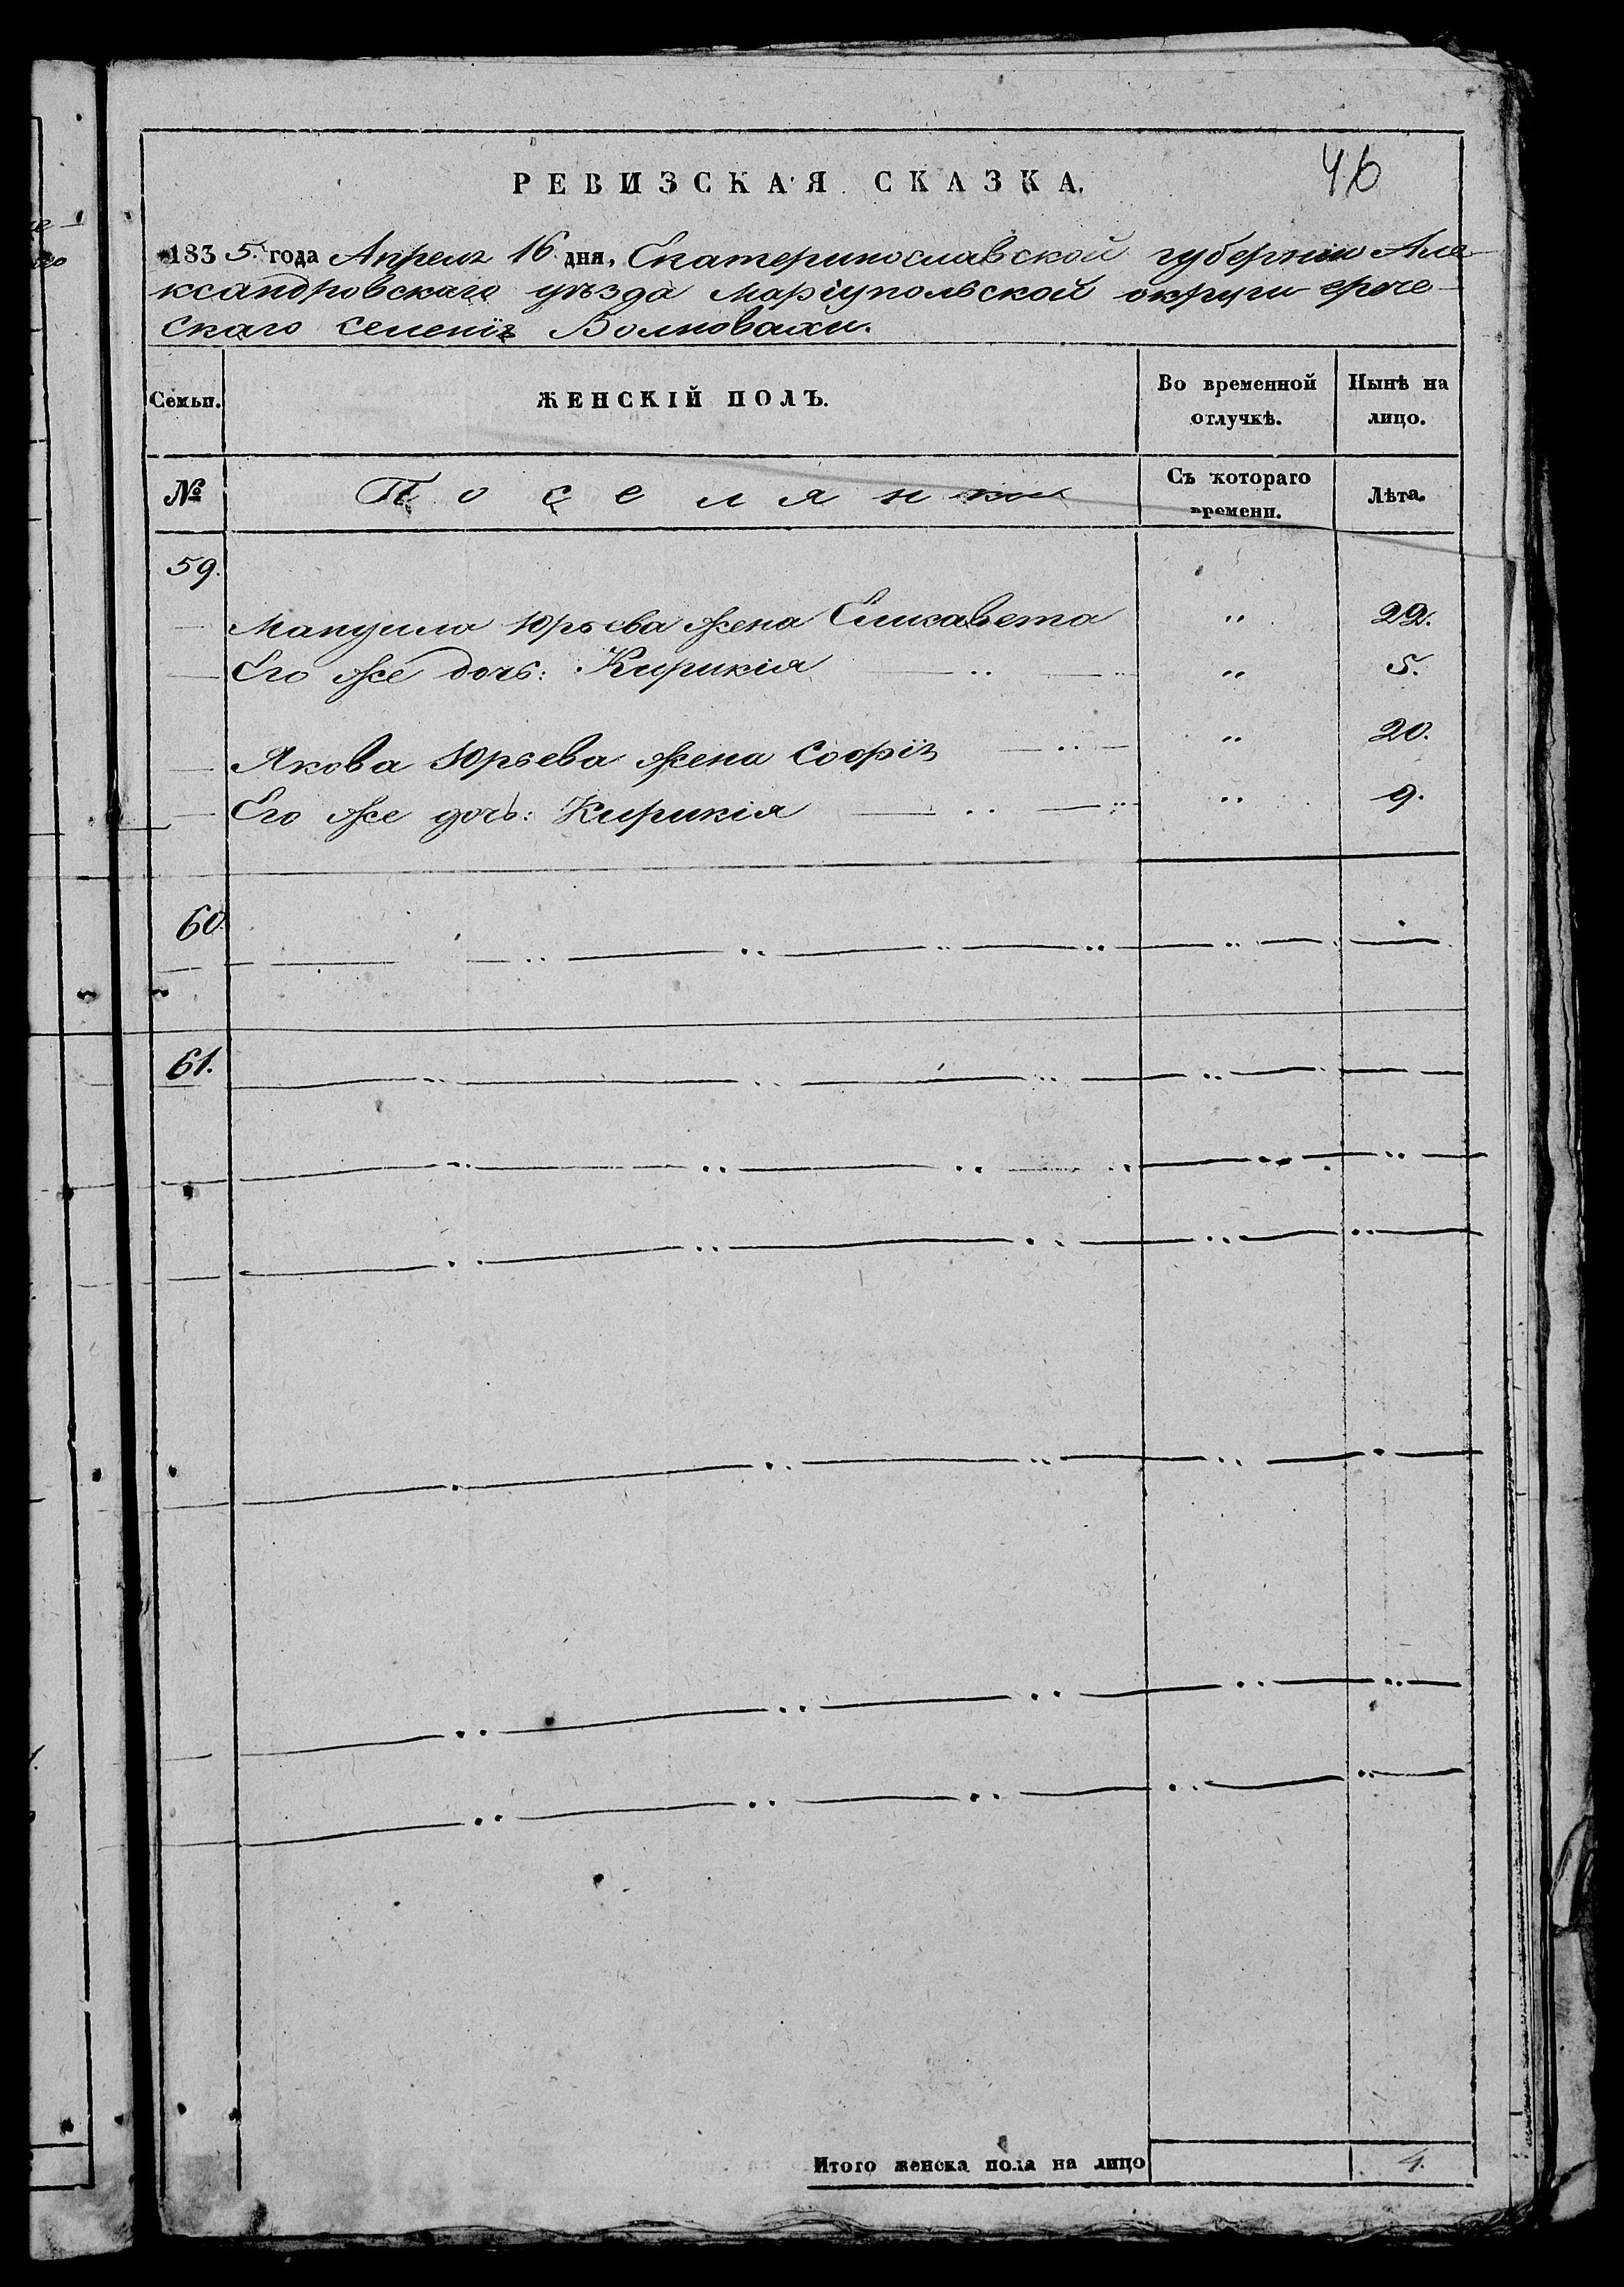 РЕВИЗСКАЯ СКАЗКА.
46
1835. года Апреля 16 дня, Екатеринославской губернии Але
ксандровскаго уѣзда Маріупольской округи грече
скаго селенія Волновахи.
Семьи.
ЖЕНСКІЙ ПОЛЪ.
Во временной отлучкѣ.
Нынѣ на лицо.
№
Поселянки
Съ котораго времени.
Лѣта.
59.
Мануила Юрьева жена Елисавета " 22.
Его же дочь: Кирикія " 5.
Якова Юрьева жена Софія " 20.
Его же дочь: Кирикія " 9.
60.
61.
Итого женска пола на лицо 4.